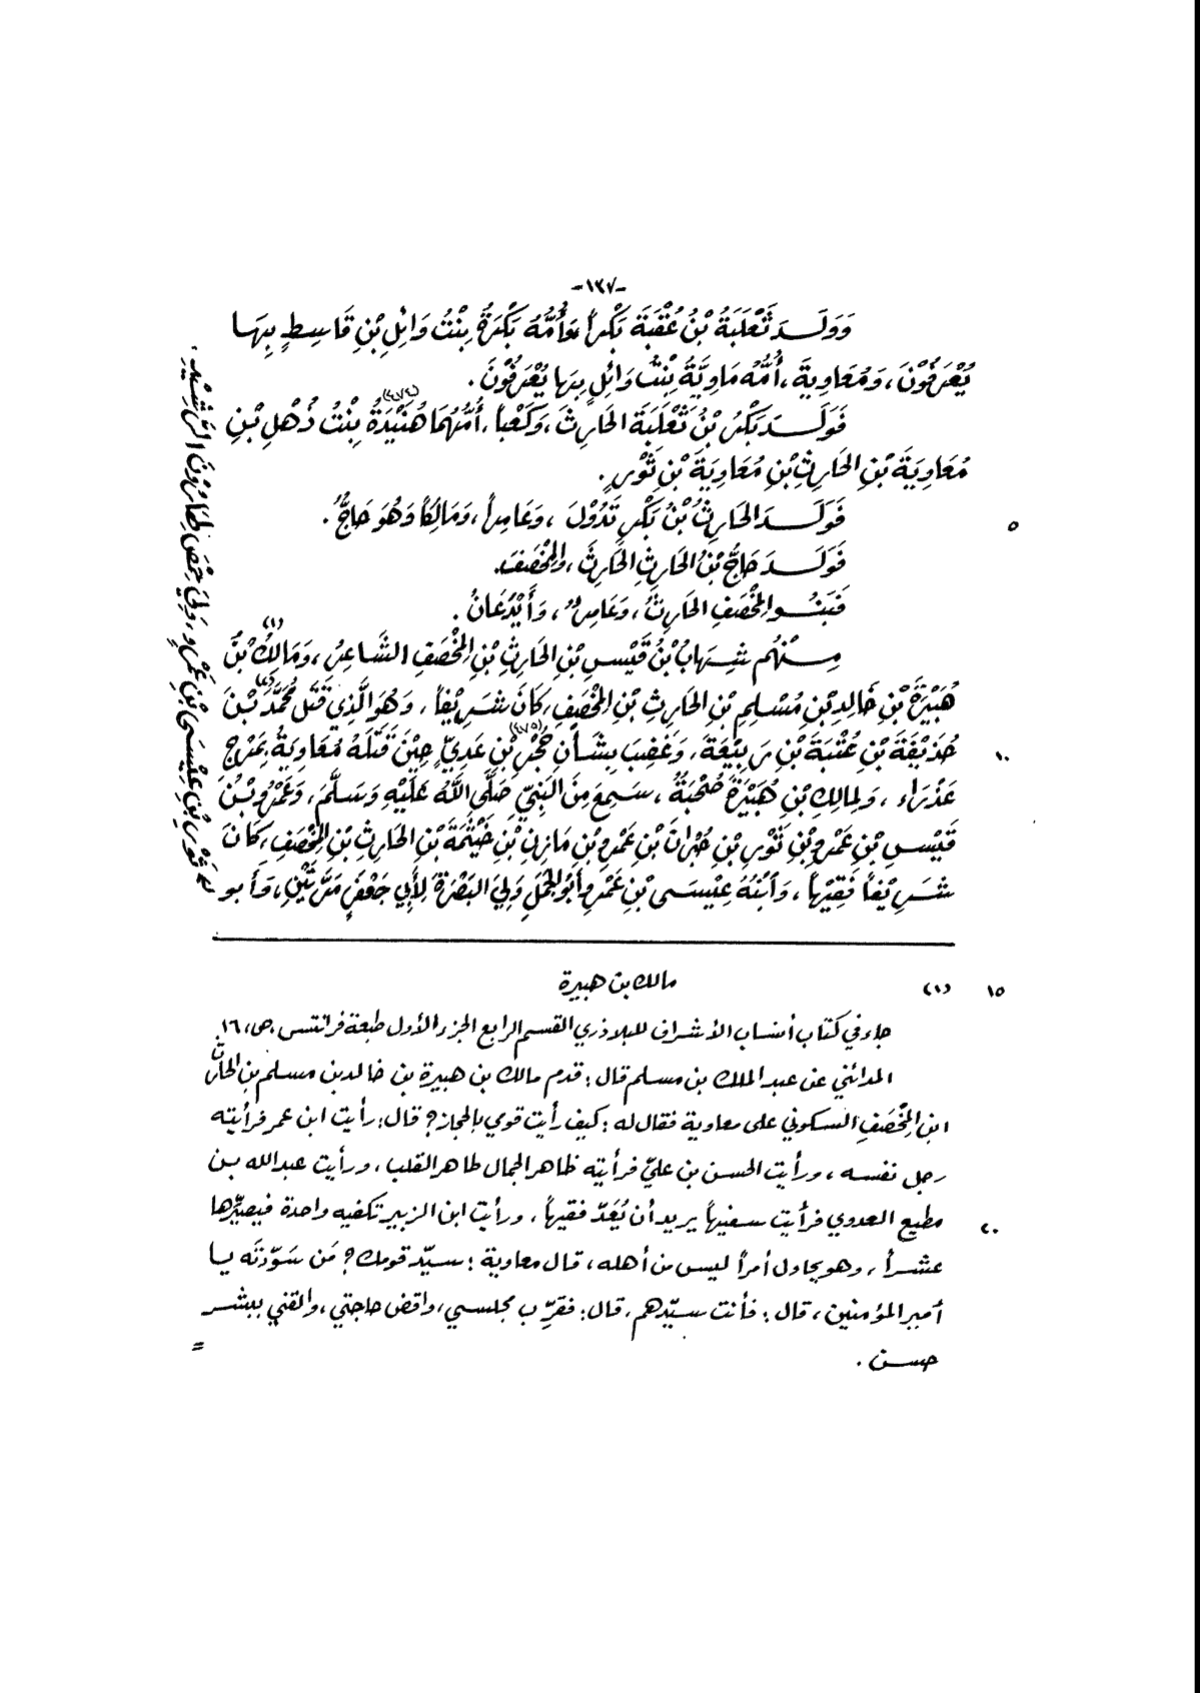 -١٢٧-
وَوَلَـدَ ثَعْلَبَةُ بْنُ عُقْبَةَ بَكْراً وَأُمُّهُ بَكْرَةُ بِنْتُ وَائِلِ بْنِ قَاسِطٍ بِهَا
يُعْرَفُونَ، وَمُعَاوِيَةَ، أُمُّهُ مَاوِيَّةُ بِنْتُ وَائِلٍ بِهَا يُعْرَفُونَ.
(٤٧٤)
فَوَلَـدَ بَكْرُ بْنُ ثَعْلَبَةَ الحَارِثَ، وَكَعْباً، أُمُّهُمَا هُنَيْدَةُ بِنْتُ ذُهْلِ بْنِ
مُعَاوِيَةَ بْنِ الحَارِثِ بْنِ مُعَاوِيَةَ بْنِ ثَوْرٍ.
فَوَلَـدَ الحَارِثُ بْنُ بَكْرٍ تَدُوْلَ، وَعَامِراً، وَمَالِكاً وَهُوَ حَاجٌّ. ٥
فَوَلَـدَ حَاجُّ بْنُ الحَارِثِ الحَارِثَ، وَالمِخْصَفَ.
فَبَنُـو المِخْصَفِ الحَارِثُ، وَعَامِرٌ، وَأَيْدَعَانُ.
مِـنْهُم شِهَابُ بْنُ قَيْسِ بْنِ الحَارِثِ بْنِ المِخْصَفِ الشَّاعِرُ، وَمَالِكُ (١) بْنُ
هُبَيْرَةَ بْنِ خَالِدِ بْنِ مُسْلِمِ بْنِ الحَارِثِ بْنِ المِخْصَفِ، كَانَ شَرِيْفاً، وَهُوَ الَّذِي قَتَلَ مُحَمَّدَ (٢) بْنَ
حُذَيْفَةَ بْنِ عُتْبَةَ بْنِ رَبِيْعَةَ، وَغَضِبَ بِشَأْنِ حُجْرِ (٤٧٥) بْنِ عَدِيٍّ حِيْنَ قَتَلَهُ مُعَاوِيَةُ بِمَرْجِ ١٠
عَذْرَاءِ، وَلِمَالِكِ بْنِ هُبَيْرَةَ صُحْبَةٌ، سَمِعَ مِنَ النَّبِيِّ صَلَّى اللَّهُ عَلَيْهِ وَسَلَّمَ، وَعَمْرُو بْنُ
قَيْسِ بْنِ عَمْرِو بْنِ ثَوْرِ بْنِ بْنِ عَمْرِو بْنِ مَازِنِ بْنِ خَيْثَمَةَ بْنِ الحَارِثِ بْنِ المِخْصَفِ، كَانَ
شَرِيْفاً فَقِيْهاً، وَابْنُهُ عِيْسَى بْنِ عَمْرِو أَبُو الجَمَلِ وَلِيَ البَصْرَةَ لِأَبِي جَعْفَرٍ مَرَّتَيْنِ، وَأَبو
ثَوْرِ بْنِ عِيْسَى بْنِ عَمْرٍو، وَلِيَ حِمْصَ لِهَارُونَ الرَّشِيْدِ.
(١) مالك بن هبيرة ١٥
جاء في كتاب أنساب الأشراف للبلاذري القسم الرابع الجزء الأول طبعة فرانتس، ص، ١٦.
المدائني عن عبد الملك بن مسلم قال: قدم مالك بن هبيرة بن خالد بن مسلم بن الحارث
ابن المِخْصَفِ السكوني على معاوية فقال له: كيف رأيت قومي بالحجاز؟ قال: رأيت ابن عمر فرأيته
رجل نفسه، ورأيت الحسن بن عليّ فرأيته ظاهر الجمال طاهر القلب، ورأيت عبد الله بن
مطيع العدوي فرأيت سفيهاً يريد أن يُعَدّ فقيهاً، ورأيت ابن الزبير تكفيه واحدة فيصيّرها ٢٠
عشـراً، وهو يحاول أمراً ليس من أهله، قال معاوية: سيّد قومك؟ مَن سَوّدتَه يا
أمير المؤمنين، قال: فأنت سيّدهم، قال: فقرّب مجلسي، واقض حاجتي، والقني ببشر
حسن. =